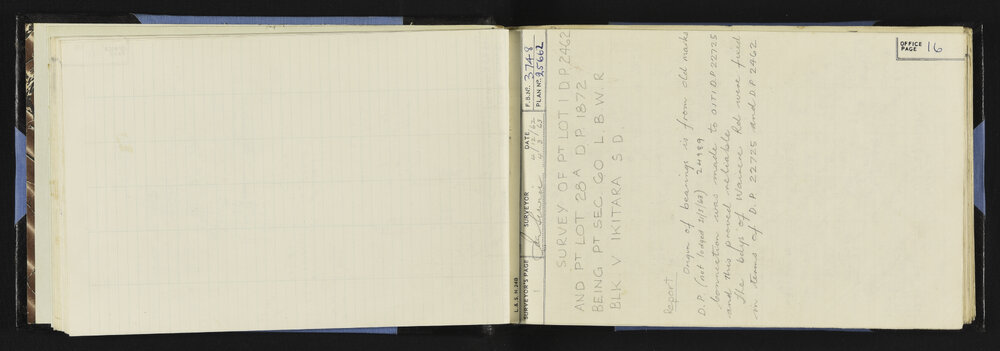 OFFICE PAGE 16
L. & S. H. 240
SURVEYOR'S PAGE 1
SURVEYOR
DATE 4/12/62
F.B. Nº. 3748
PLAN Nº. 25662
SURVEY OF PT LOT 1 D.P. 2462
AND PT LOT 28A D.P. 1872
BEING PT SEC 60 L.B.W.R
BLK V IKITARA S.D.
Report
Origin of bearings is from old marks
D.P. (not lodged 21/1/63) 24989
Connection was made to OIT I D.P. 22725
and this proved reliable.
The bdys of Wairere Rd were fixed
in terms of D.P. 22725 and D.P. 2462